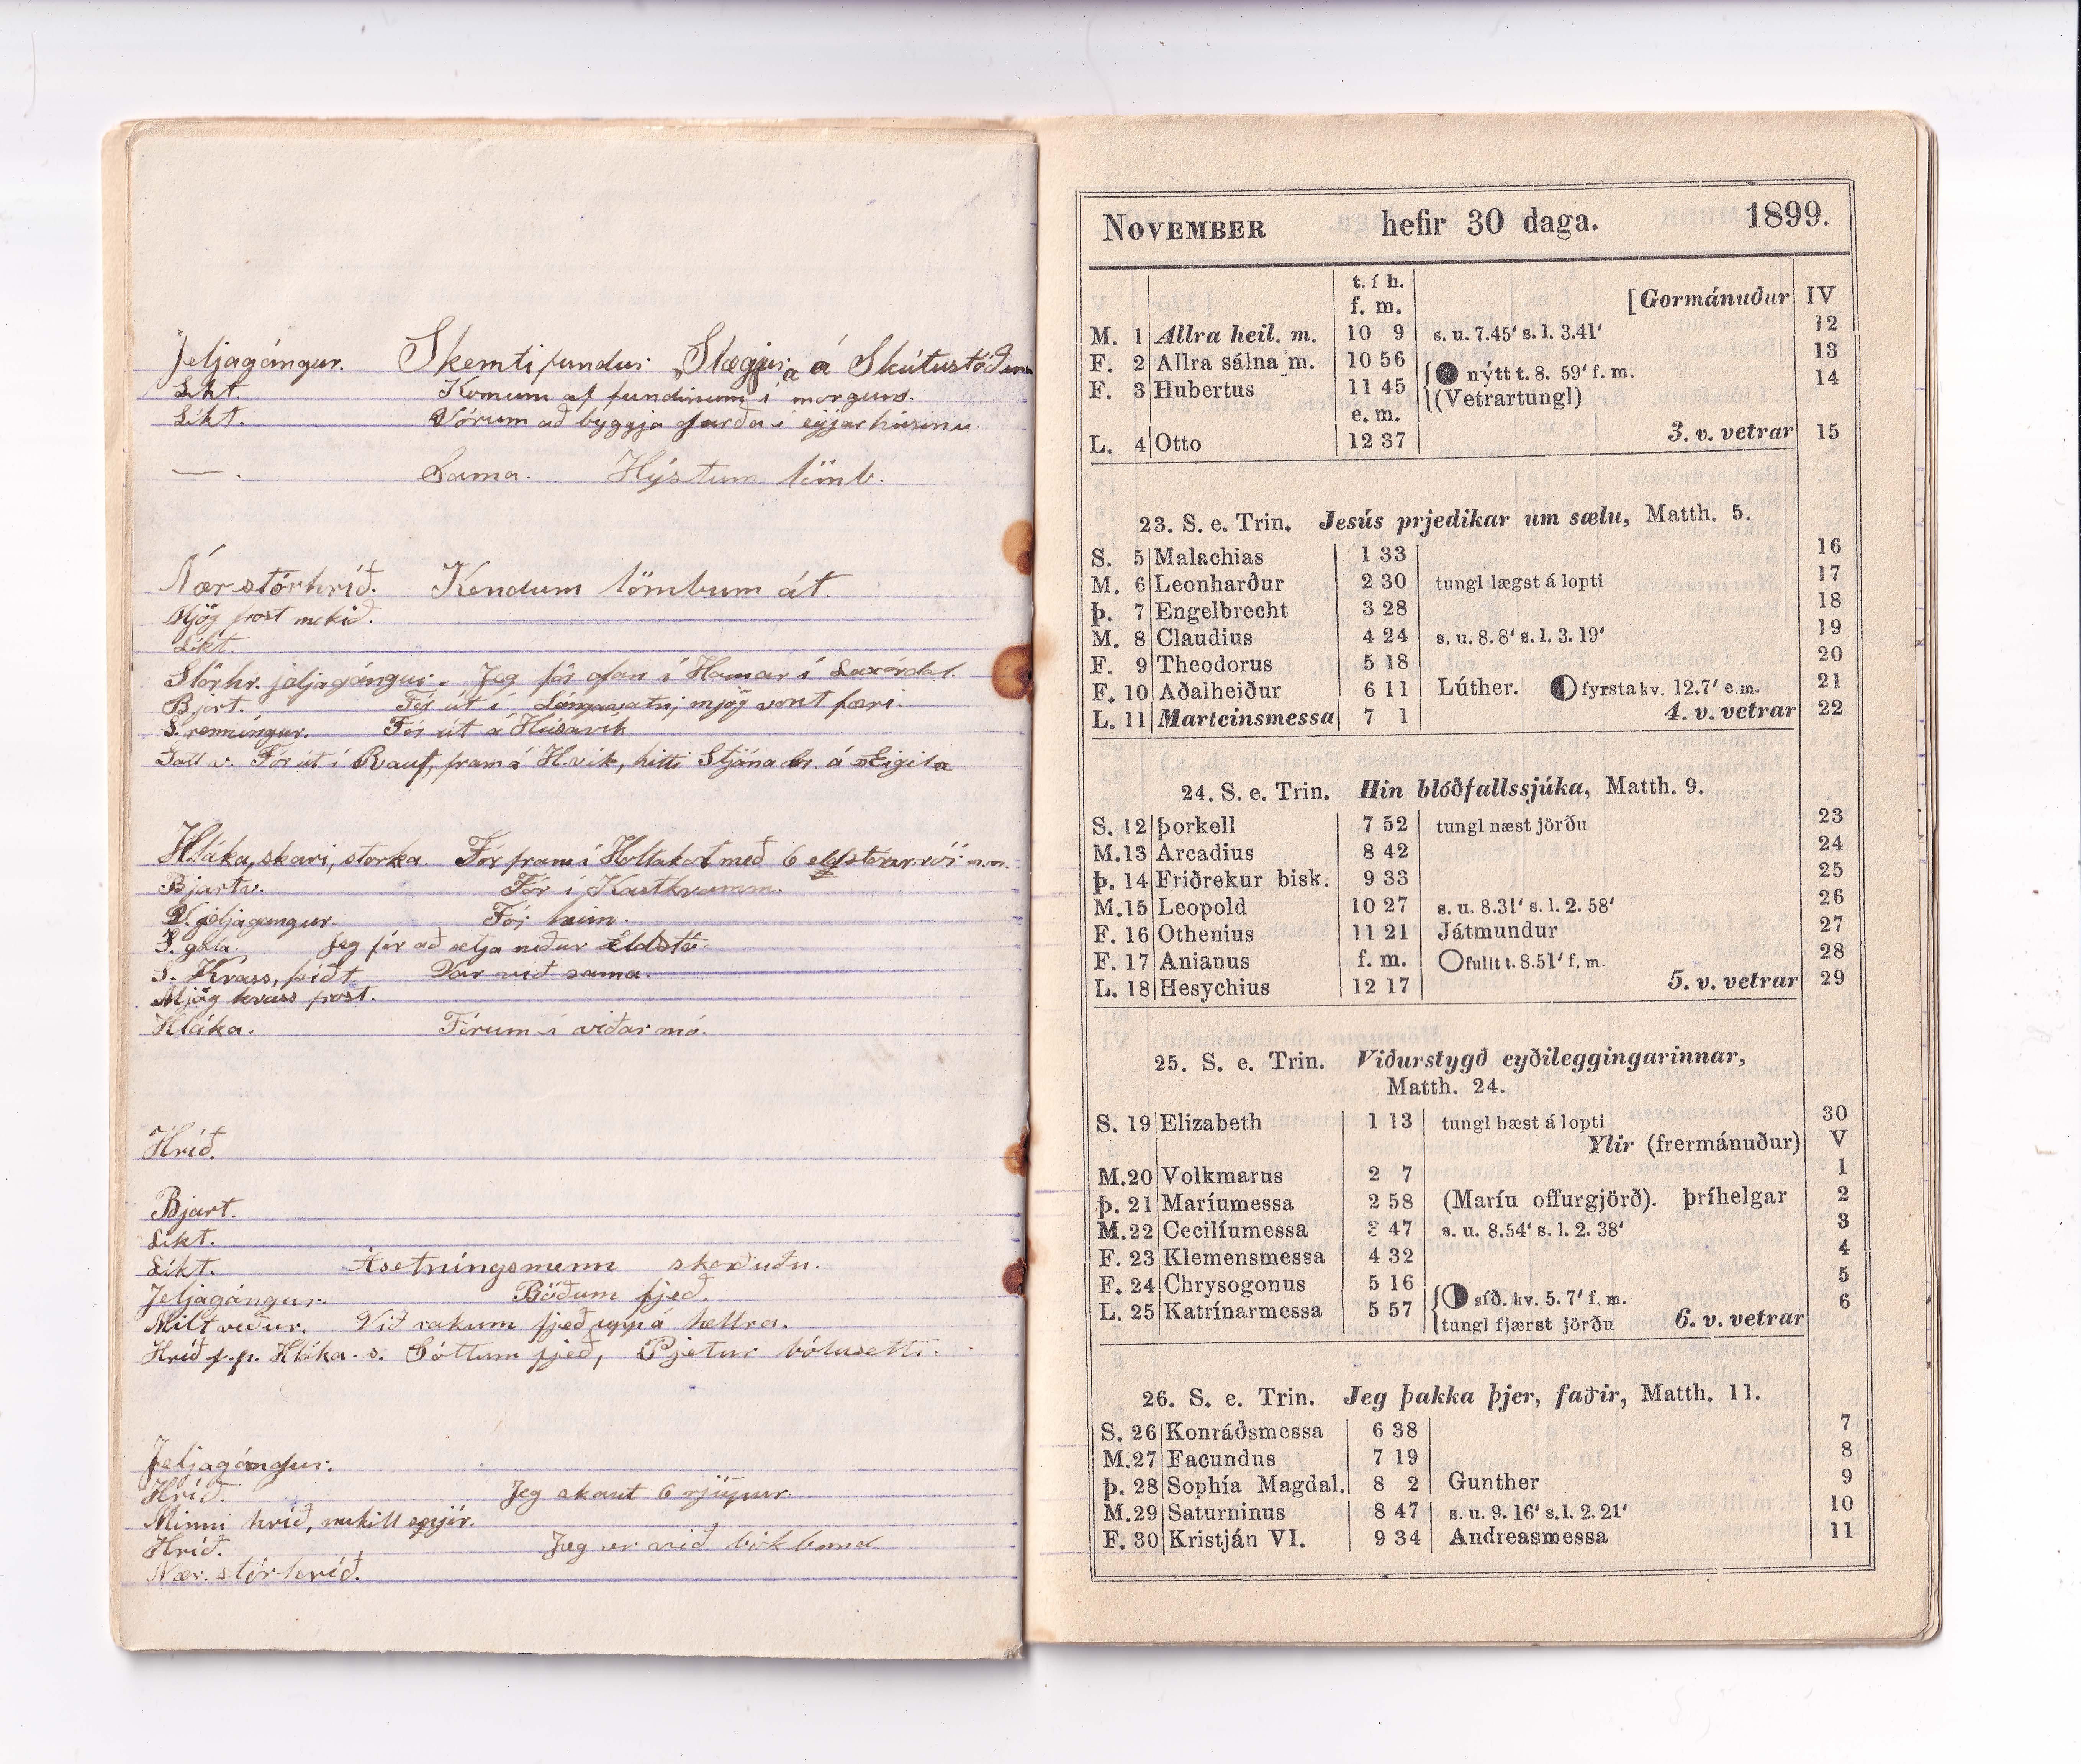 Jeljagángur. Skemtifundur „Slægjur“ á Skútustöðum
Líkt. Komum af fundinum í morgun.
Líkt. Vórum að byggja garða í eyjarhúsinu.
— . Sama. Hýstum lömb.
Nær stórhríð. Kendum lömbum át.
Mjög frost mikið.
Líkt.
Stórhr. jeljagángur. Jeg fór ofan í Hamar í Laxárdal.
Bjart. Fór út í Lángavatn, mjög vont færi.
S. renníngur. Fór út á Húsavík
Fór út í Rauf, fram á H.vík, hitti Stjána br. á
Hláka, skari, storka. Fór fram í Holtakot með 6
Bjartv. Fór í Kasthvamm.
jeljagangur. Fór heim.
S. gola. Jeg fór að setja niður eldstó.
S. Kvass, þíðt Var við sama.
Mjög kvass frost.
Hláka. Fórum í viðarmó.
Hríð.
Bjart.
Líkt.
Líkt. Ásetníngsmenn skoðuðu.
Jeljagángur. Böðum fjeð.
Milt veður. Við rakum fjeð uppá hellra.
Hríð f.p. Hláka. s. Sóttum fjeð, Pjetur bólusetti.
Jeljagángur.
Hríð. Jeg skaut 6 rjúpur.
Minni hríð, mikill snjór.
Hríð. Jeg er við bókband
Nær stórhríð.
NOVEMBER hefir 30 daga. 1899.
t. í h. [Gormánuður IV
f. m.
M. 1 Allra heil. m. 10 9 s. u. 7.45′ s. l. 3.41′ 12
F. 2 Allra sálna m. 10 56 nýtt t. 8. 59′ f. m. 13
F. 3 Hubertus 11 45 (Vetrartungl) 14
e. m.
L. 4 Otto 12 37 3. v. vetrar 15
23. S. e. Trin. Jesús prjedikar um sælu, Matth. 5.
S. 5 Malachias 1 33 16
M. 6 Leonharður 2 30 tungl lægst á lopti 17
Þ. 7 Engelbrecht 3 28 18
M. 8 Claudius 4 24 s. u. 8. 8′ s. l. 3. 19′ 19
F. 9 Theodorus 5 18 20
F. 10 Aðalheiður 6 11 Lúther. fyrsta kv. 12.7′ e. m. 21
L. 11 Marteinsmessa 7 1 4. v. vetrar 22
24. S. e. Trin. Hin blóðfallssjúka, Matth. 9.
S. 12 Þorkell 7 52 tungl næst jörðu 23
M. 13 Arcadius 8 42 24
Þ. 14 Friðrekur bisk. 9 33 25
M. 15 Leopold 10 27 s. u. 8.31′ s. l. 2. 58′ 26
F. 16 Othenius 11 21 Játmundur 27
F. 17 Anianus f. m. fullt t. 8.51′ f. m. 28
L. 18 Hesychius 12 17 5. v. vetrar 29
25. S. e. Trin. Viðurstygð eyðileggingarinnar,
Matth. 24.
S. 19 Elizabeth 1 13 tungl hæst á lopti 30
Ylir (frermánuður) V
M. 20 Volkmarus 2 7 1
Þ. 21 Maríumessa 2 58 (Maríu offurgjörð). Þríhelgar 2
M. 22 Cecilíumessa 3 47 s. u. 8.54′ s. l. 2. 38′ 3
F. 23 Klemensmessa 4 32 4
F. 24 Chrysogonus 5 16 síð. kv. 5. 7′ f. m. 5
L. 25 Katrínarmessa 5 57 tungl fjærst jörðu 6. v. vetrar 6
26. S. e. Trin. Jeg þakka þjer, faðir, Matth. 11.
S. 26 Konráðsmessa 6 38 7
M. 27 Facundus 7 19 8
Þ. 28 Sophía Magdal. 8 2 Gunther 9
M. 29 Saturninus 8 47 s. u. 9. 16′ s. l. 2. 21′ 10
F. 30 Kristján VI. 9 34 Andreasmessa 11